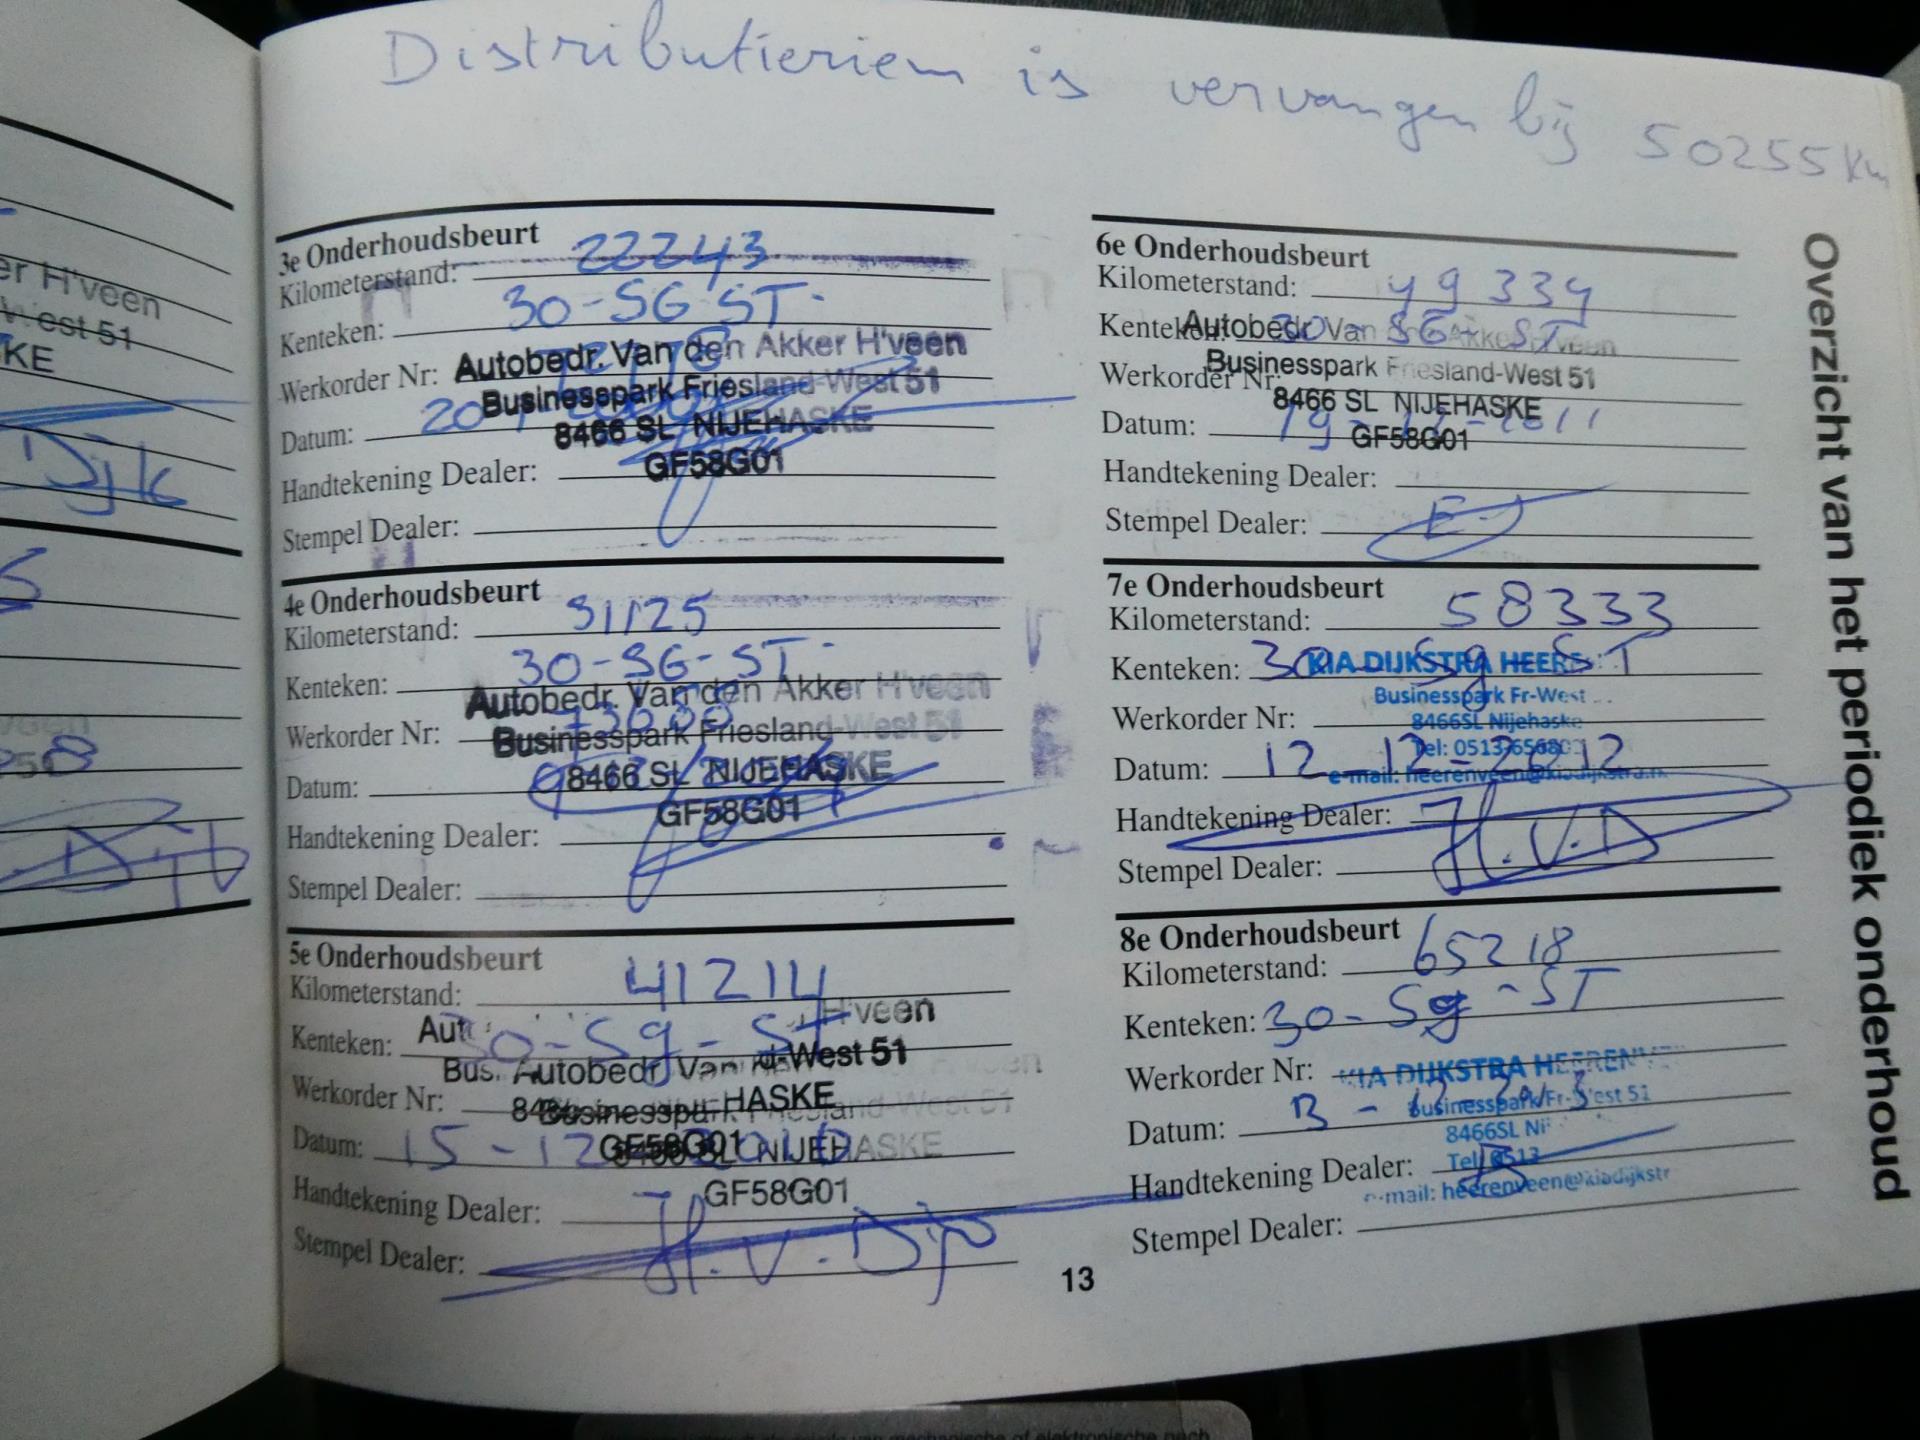 Distributieriem is vervangen bij 50255 km
er H'veen
West 51
KE
Dijk
3e Onderhoudsbeurt
Kilometerstand: 22243
Kenteken: 30-SG-ST
Werkorder Nr:
Datum:
Handtekening Dealer:
Stempel Dealer:
Autobedr. Van den Akker H'veen
Businesspark Friesland-West 51
8466 SL NIJEHASKE
GF58G01
4e Onderhoudsbeurt
Kilometerstand: 31125
Kenteken: 30-SG-ST
Werkorder Nr:
Datum:
Handtekening Dealer:
Stempel Dealer:
Autobedr. Van den Akker H'veen
Businesspark Friesland-West 51
8466 SL NIJEHASKE
GF58G01
5e Onderhoudsbeurt
Kilometerstand: 41214
Kenteken: 30-Sg-ST
Werkorder Nr:
Datum: 15-12-2010
Handtekening Dealer:
Stempel Dealer: H.v.Dijk
H'veen
Autobedr. Van
d-West 51
HASKE
GF58G01
NIJEHASKE
GF58G01
6e Onderhoudsbeurt
Kilometerstand: 49334
Kenteken: 30-SG-ST
Werkorder Nr:
Datum: 19
2011
Handtekening Dealer:
Stempel Dealer:
Autobedr. Van den Akker H'veen
Businesspark Friesland-West 51
8466 SL NIJEHASKE
GF58G01
7e Onderhoudsbeurt
Kilometerstand: 58333
Kenteken: 30-Sg-ST
Werkorder Nr:
Datum: 12-12-2012
Handtekening Dealer: H.v.D
Stempel Dealer:
KIA DIJKSTRA HEER
Businesspark Fr-West
8466SL Nijehaske
Tel: 0513-65680
e-mail: heerenveen@kiadijkstra.n
8e Onderhoudsbeurt
Kilometerstand: 65218
Kenteken: 30-Sg-ST
Werkorder Nr:
Datum:
Handtekening Dealer:
Stempel Dealer:
KIA DIJKSTRA HEERENVE
Businesspark Fr-West 51
8466SL Ni
Tel: 0513
e-mail: heerenveen@kiadijkstr
13
Overzicht van het periodiek onderhoud